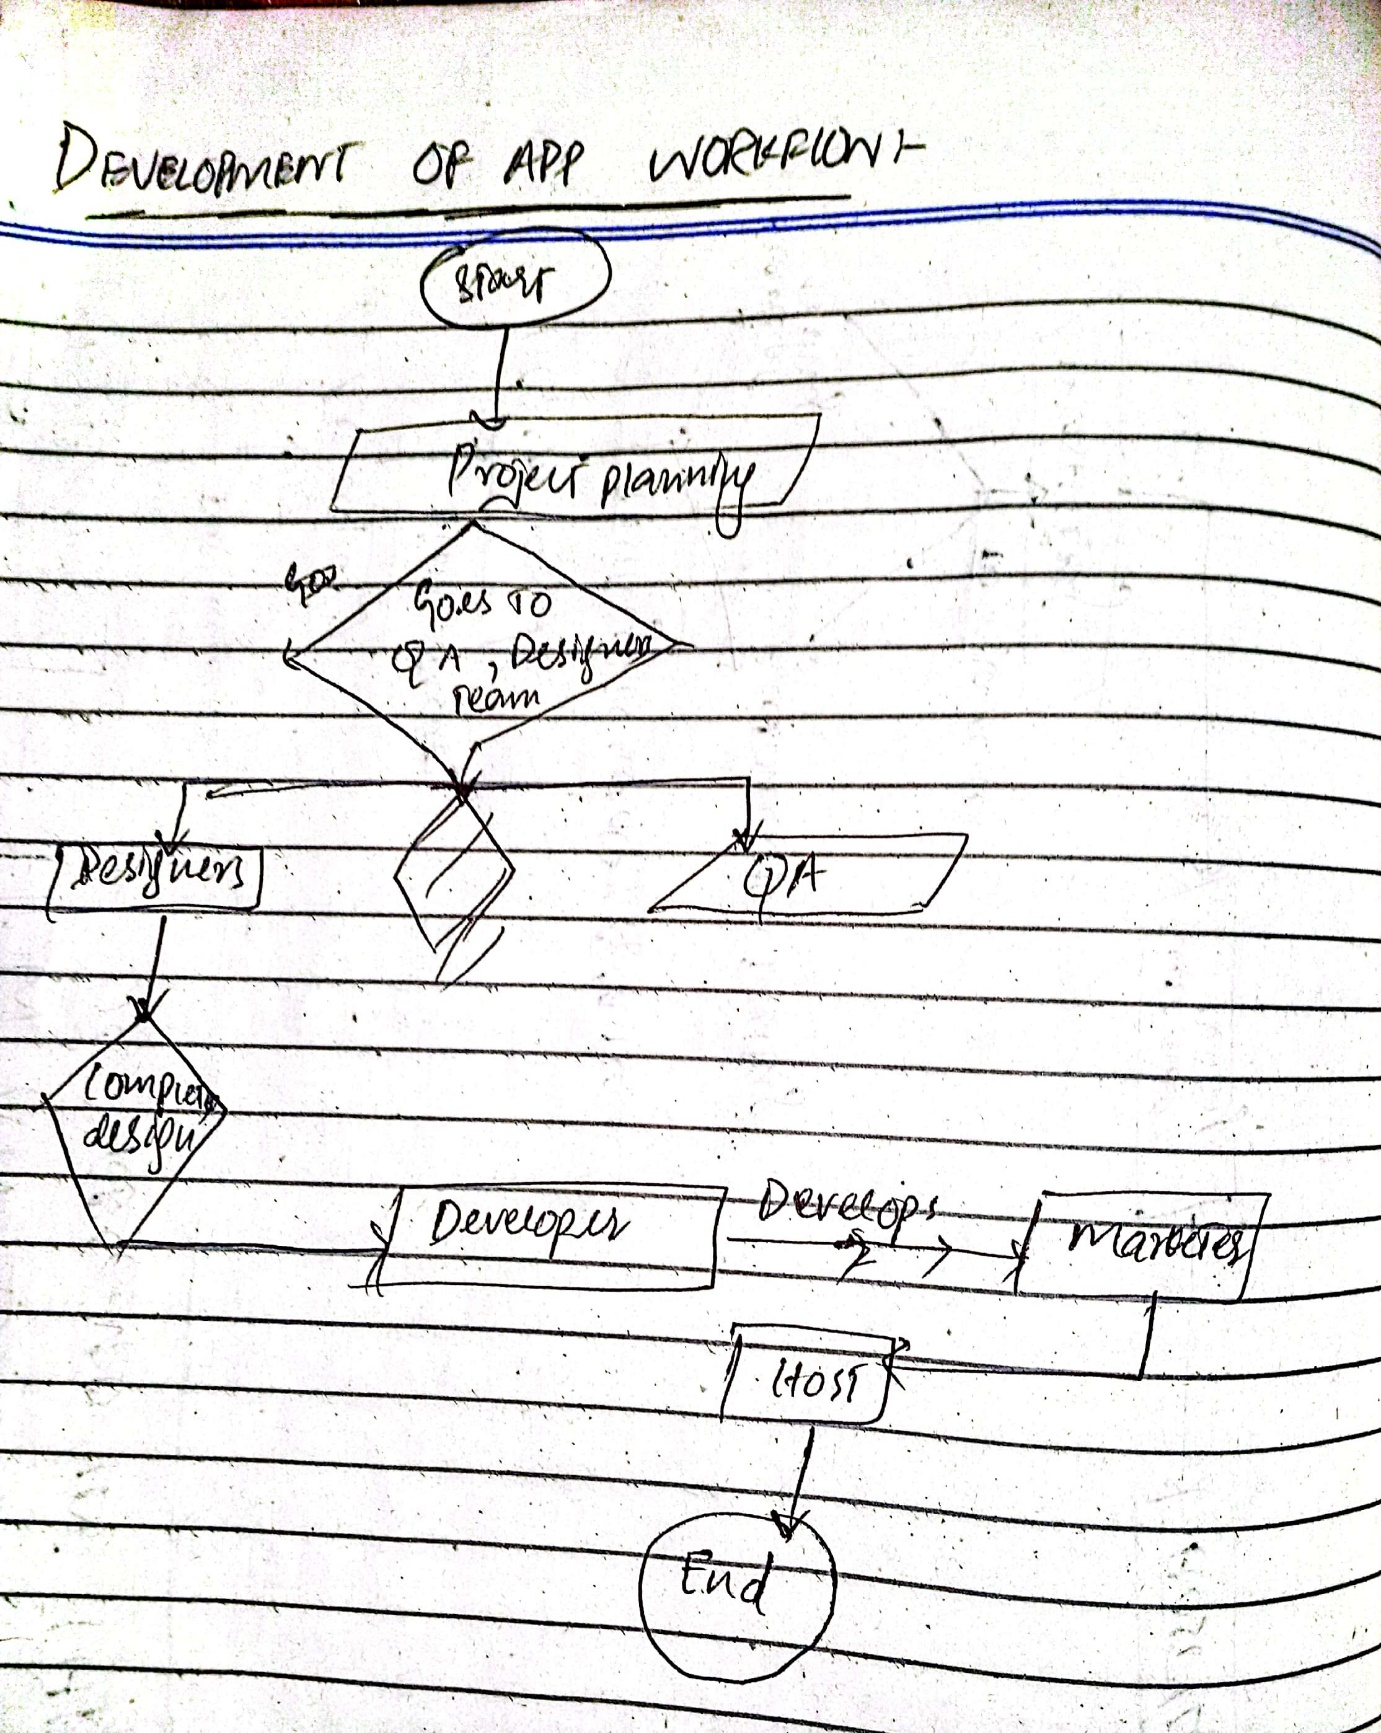 DEVELOPMENT OF APP WORKFLOW
Start
Project planning
Goes TO
QA, Designer
Team
Designers
QA
Complete
design
Developer
Develops
Host
End